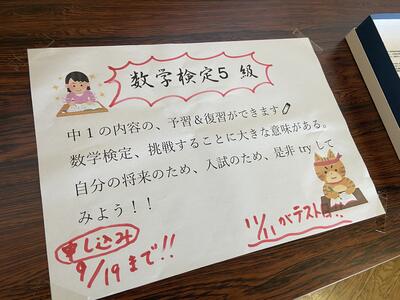 数学検定5 級
中1の内容の、予習&復習ができます
数学検定、挑戦することに大きな意味がある。
自分の将来のため、入試のため、是非 try して
みよう！！
申し込み
9/19まで!!
11/11がテスト日!!